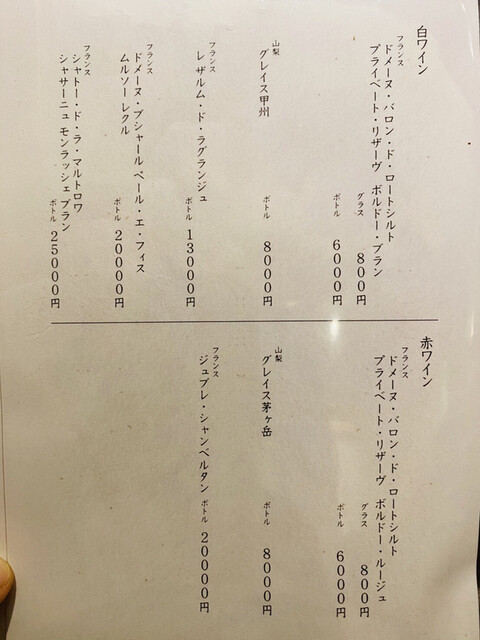 白ワイン
フランス
ドメーヌ・バロン・ド・ロートシルト
プライベート・リザーヴ ボルドー・ブラン
グラス 800円
ボトル 6000円
山梨
グレイス甲州
ボトル 8000円
フランス
レザルム・ド・ラグランジュ
ボトル 13000円
フランス
ドメーヌ・ブシャールペール・エ・フィス
ムルソー レクル
ボトル 20000円
フランス
シャトー・ド・ラ・マルトロワ
シャサーニュ モンラッシェ ブラン
ボトル 25000円
赤ワイン
フランス
ドメーヌ・バロン・ド・ロートシルト
プライベート・リザーヴ ボルドー・ルージュ
グラス 800円
ボトル 6000円
山梨
グレイス茅ヶ岳
ボトル 8000円
フランス
ジュブレ・シャンベルタン
ボトル 20000円